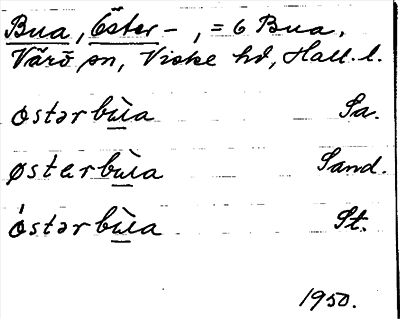 Bua, Öster-, = 6 Bua,
Värö sn, Viske hd, Hall. l.
ostərbùa Sa.
østarbùa Sand.
óstərbùa St.
1950.